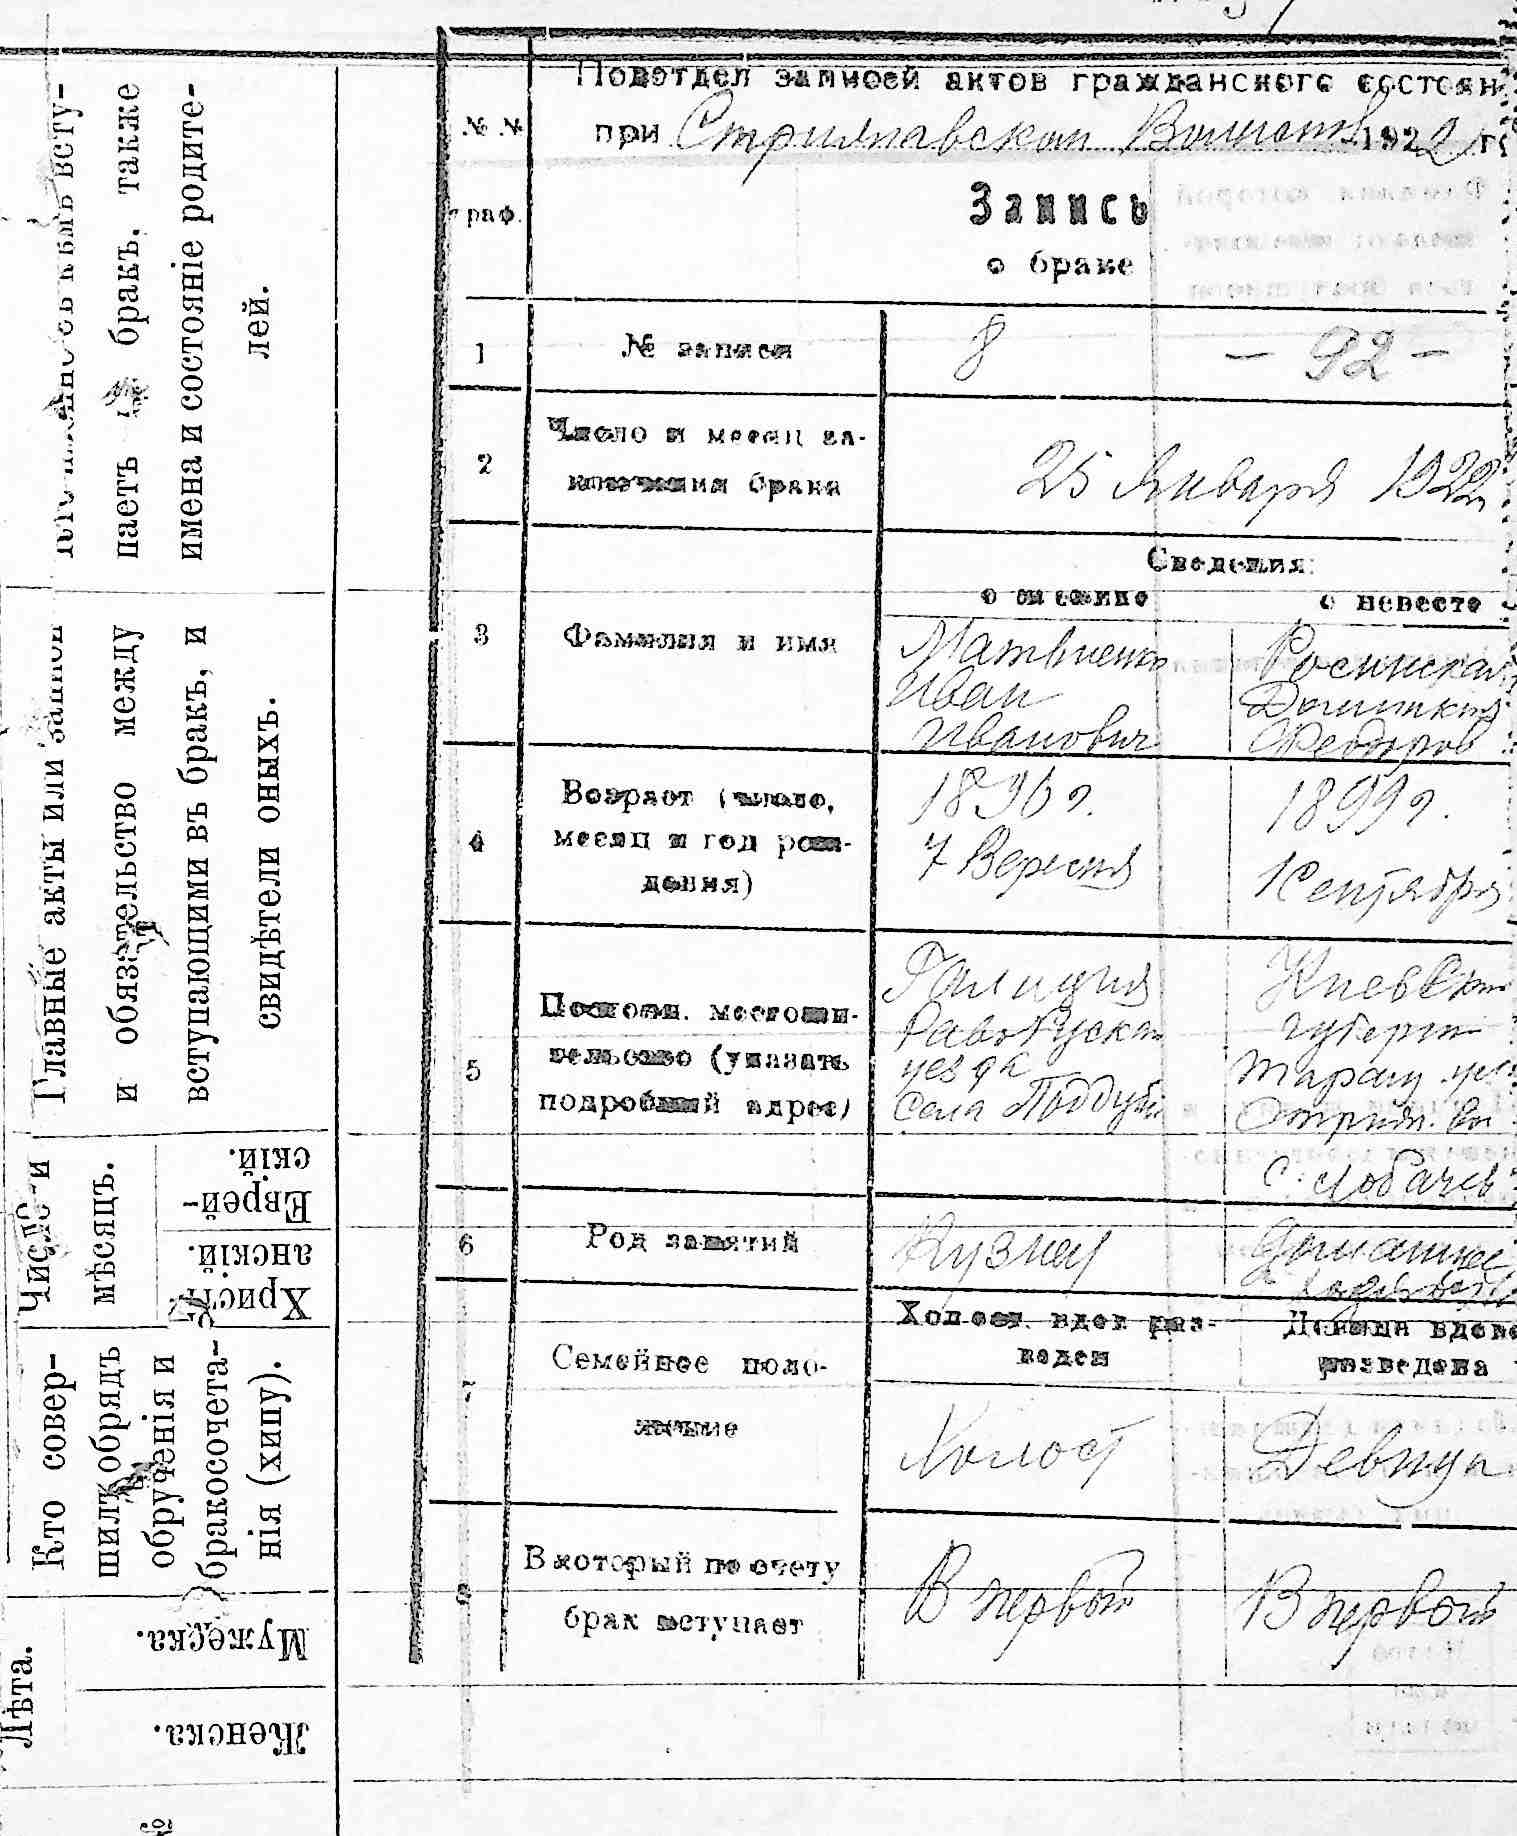 Подотдел записей актов гражданского состоян
№ №
при Волости 1922 го
граф.
Запись
о браке
1
№ записи
8
— 92 —
2
Число и месяц за-
ключения брака
25 Января 1922
Сведения:
о женихе
о невесте
3
Фамилия и имя
Матвиенко
Иван
Иванович
Федоров
4
Возраст (число,
месяц и год рож-
дения)
1896 г.
7 Вересня
1899 г.
1 Сентября
5
Постоян. местожи-
тельство (указать
подробный адрес)
Галиция
уезда
Села Поддуб
Киевск
губерн
Таращ. уез
С. Лобачев
6
Род занятий
Кузнец
Домашнее
7
Семейное поло-
жение
Холост, вдов, раз-
веден
Девица, вдова
разведена
Холост
Девица
8
В который по счету
брак вступает
В первый
В первый
всту-
паетъ бракъ, также
имена и состояніе родите-
лей.
Главные акты или записи
и обязательство между
вступающими въ бракъ, и
свидѣтели оныхъ.
Число и
мѣсяцъ.
Еврей-
скій.
Христі-
анскій.
Кто совер-
шилъ обрядъ
обрученія и
бракосочета-
нія (хипу).
Лѣта.
Мужеска.
Женска.